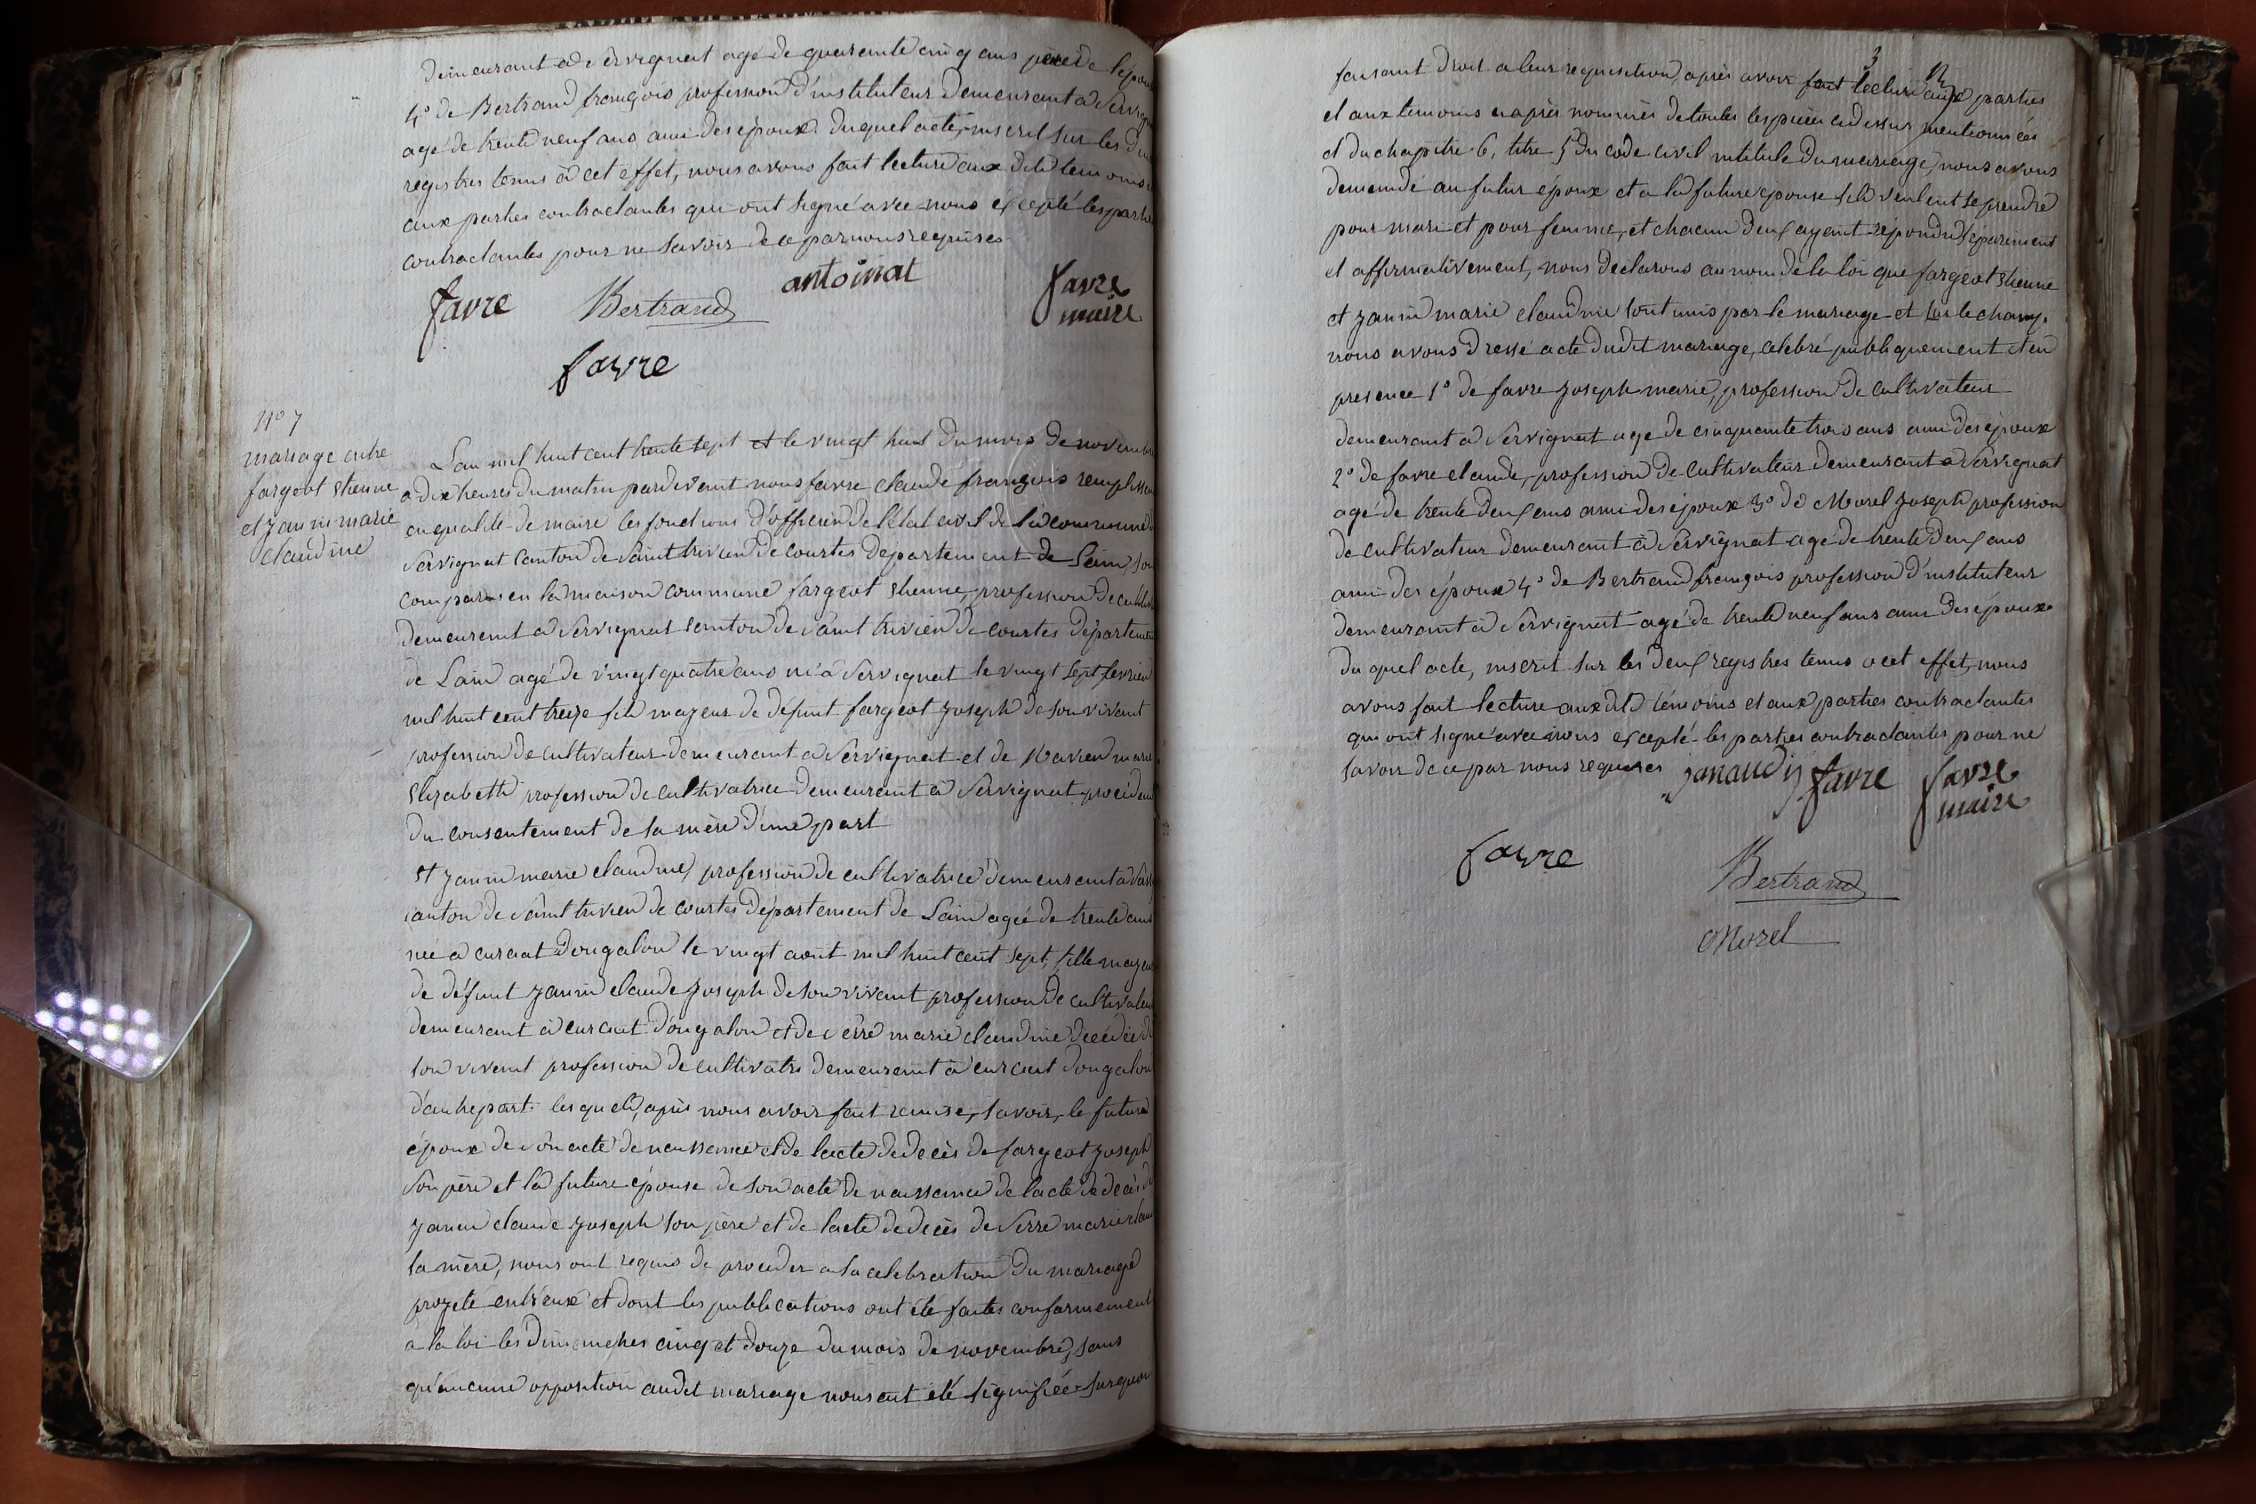 demeurant a Servignat agé de quarante cinq ans père de lépoux
4° de Bertrand françois profession d'instituteur demeurant a Servignat
agé de trente neuf ans ami des époux. duquel acte, inscrit sur les deux
registres tenus à cet effet, nous avons fait lecture aux dits temoins et
aux parties contractantes qui ont signé avec nous éxcepté les parties
contractantes pour ne savoir de ce par nous requises
favre Bertrand antoinat favre
maire
favre
N° 7
mariage entre
fargeot Etienne
et Janin marie
claudine
L'an mil huit cent trente sept et le vingt huit du mois de novembre
a dix heures du matin pardevant nous favre claude françois remplissant
en qualité de maire les fonctions d'officier de l'état civil de la commune de
Servignat canton de Saint trivier de courtes département de Lain sont
comparus en la maison commune fargeot Etienne, profession de cultivateur
demeurant a Servignat canton de Saint trivier de courtes département
de Lain agé de vingt quatre ans né a Servignat le vingt sept fevrier
mil huit cent treize fils majeur de defunt fargeot Joseph de son vivant
profession de cultivateur demeurant a Servignat et de marie
Elizabeth profession de cultivatrice demeurant a Servignat procédant
du consentement de sa mère d'une part
Et Janin marie claudine, profession de cultivatrice demeurant a
canton de Saint trivier de courtes département de Lain agée de trente ans
née a curciat Dongalon le vingt août mil huit cent sept, fille majeure
de défunt Janin claude Joseph de son vivant profession de cultivateur
demeurant à curciat Dongalon et de Serre marie claudine décédée de
son vivant profession de cultivatrice demeurant à curciat Dongalon
d'autre part lesquels, après nous avoir fait remise, savoir, le futur
époux de son acte de naissance et de lacte de décès de fargeot Joseph
son père et la future épouse de son acte de naissance de l'acte de décès de
Janin claude Joseph son père et de lacte de decès de Serre marie claudine
sa mère, nous ont requis de proceder a la celebration du mariage
projeté entr'eux et dont les publications ont été faites conformement
a la loi les dimanches cinq et douze du mois de novembre, sans
qu'aucune opposition audit mariage nous ait été signifiée surquoi
3
faisant droit a leur requisition, après avoir fait lecture aux parties
et aux temoins ciaprès nommés de toutes les pièces cidessus mentionnées
et du chapitre 6, titre 5 du code civil intitulé du mariage, nous avons
demandé au futur époux et a la future épouse s'ils veulent se prendre
pour mari et pour femme, et chacun deux ayant répondu séparément
et affirmativement, nous déclarons au nom de la loi que fargeot Etienne
et Janin marie claudine sont unis par le mariage et sur le champ
nous avons dressé acte dudit mariage, celebré publiquement et en
presence 1° de favre Joseph marie, profession de cultivateur
demeurant a Servignat agé de cinquante trois ans ami des époux
2° de favre claude, profession de cultivateur demeurant a Servignat
agé de trente deux ans ami des époux 3° de Morel Joseph profession
de cultivateur demeurant à Servignat agé de trente deux ans
ami des époux 4° de Bertrand françois profession d'instituteur
demeurant à Servignat agé de trente neuf ans ami des époux
du quel acte, inscrit sur les deux registres tenus a cet effet, nous
avons fait lecture auxdits témoins et aux parties contractantes
qui ont signé avec nous excepté les parties contractantes pour ne
savoir de ce par nous requises favre favre
maire
favre Bertrand
Morel